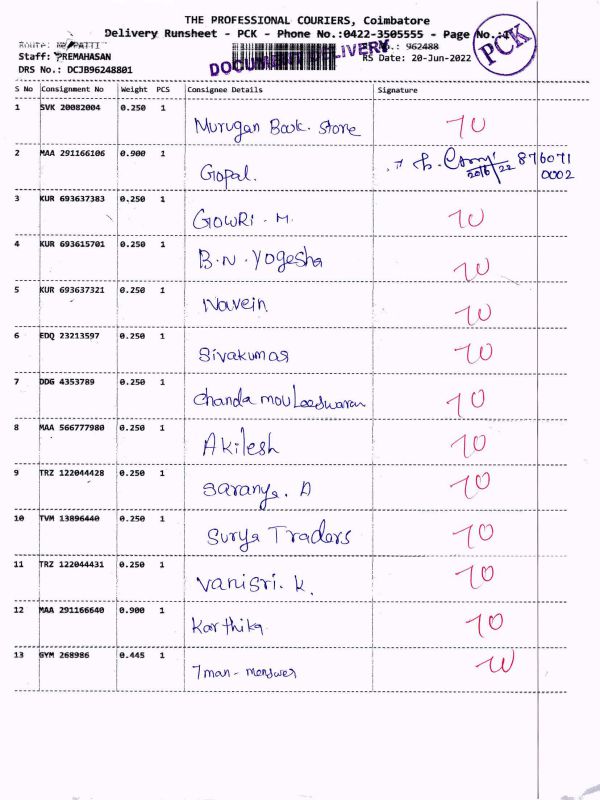 THE PROFESSIONAL COURIERS, Coimbatore
Delivery Runsheet - PCK - Phone No.:0422-3505555 - Page No.:
PCK
DOCUMENT DELIVERY
Route:
.: 962488
Staff: PREMAHASAN
RS Date: 20-Jun-2022
DRS No.: DCJB96248801
S No Consignment No Weight PCS Consignee Details Signature
1 SVK 20082004 0.250 1 Murugan Book. Store
2 MAA 291166106 0.900 1 Gopal. 20/6/22 876071 0002
3 KUR 693637383 0.250 1 GOWRI. M
4 KUR 693615701 0.250 1 B.N.Yogesha
5 KUR 693637321 0.250 1 Navein
6 EDQ 23213597 0.250 1 Sivakumar
7 DDG 4353789 0.250 1 Chanda mouleeswaran
8 MAA 566777980 0.250 1 Akilesh
9 TRZ 122044428 0.250 1 Saranya. D
10 TVM 13896440 0.250 1 Surya Traders
11 TRZ 122044431 0.250 1 Vanisri. K.
12 MAA 291166640 0.900 1 Karthika
13 GYM 268986 0.445 1 7man-menswer